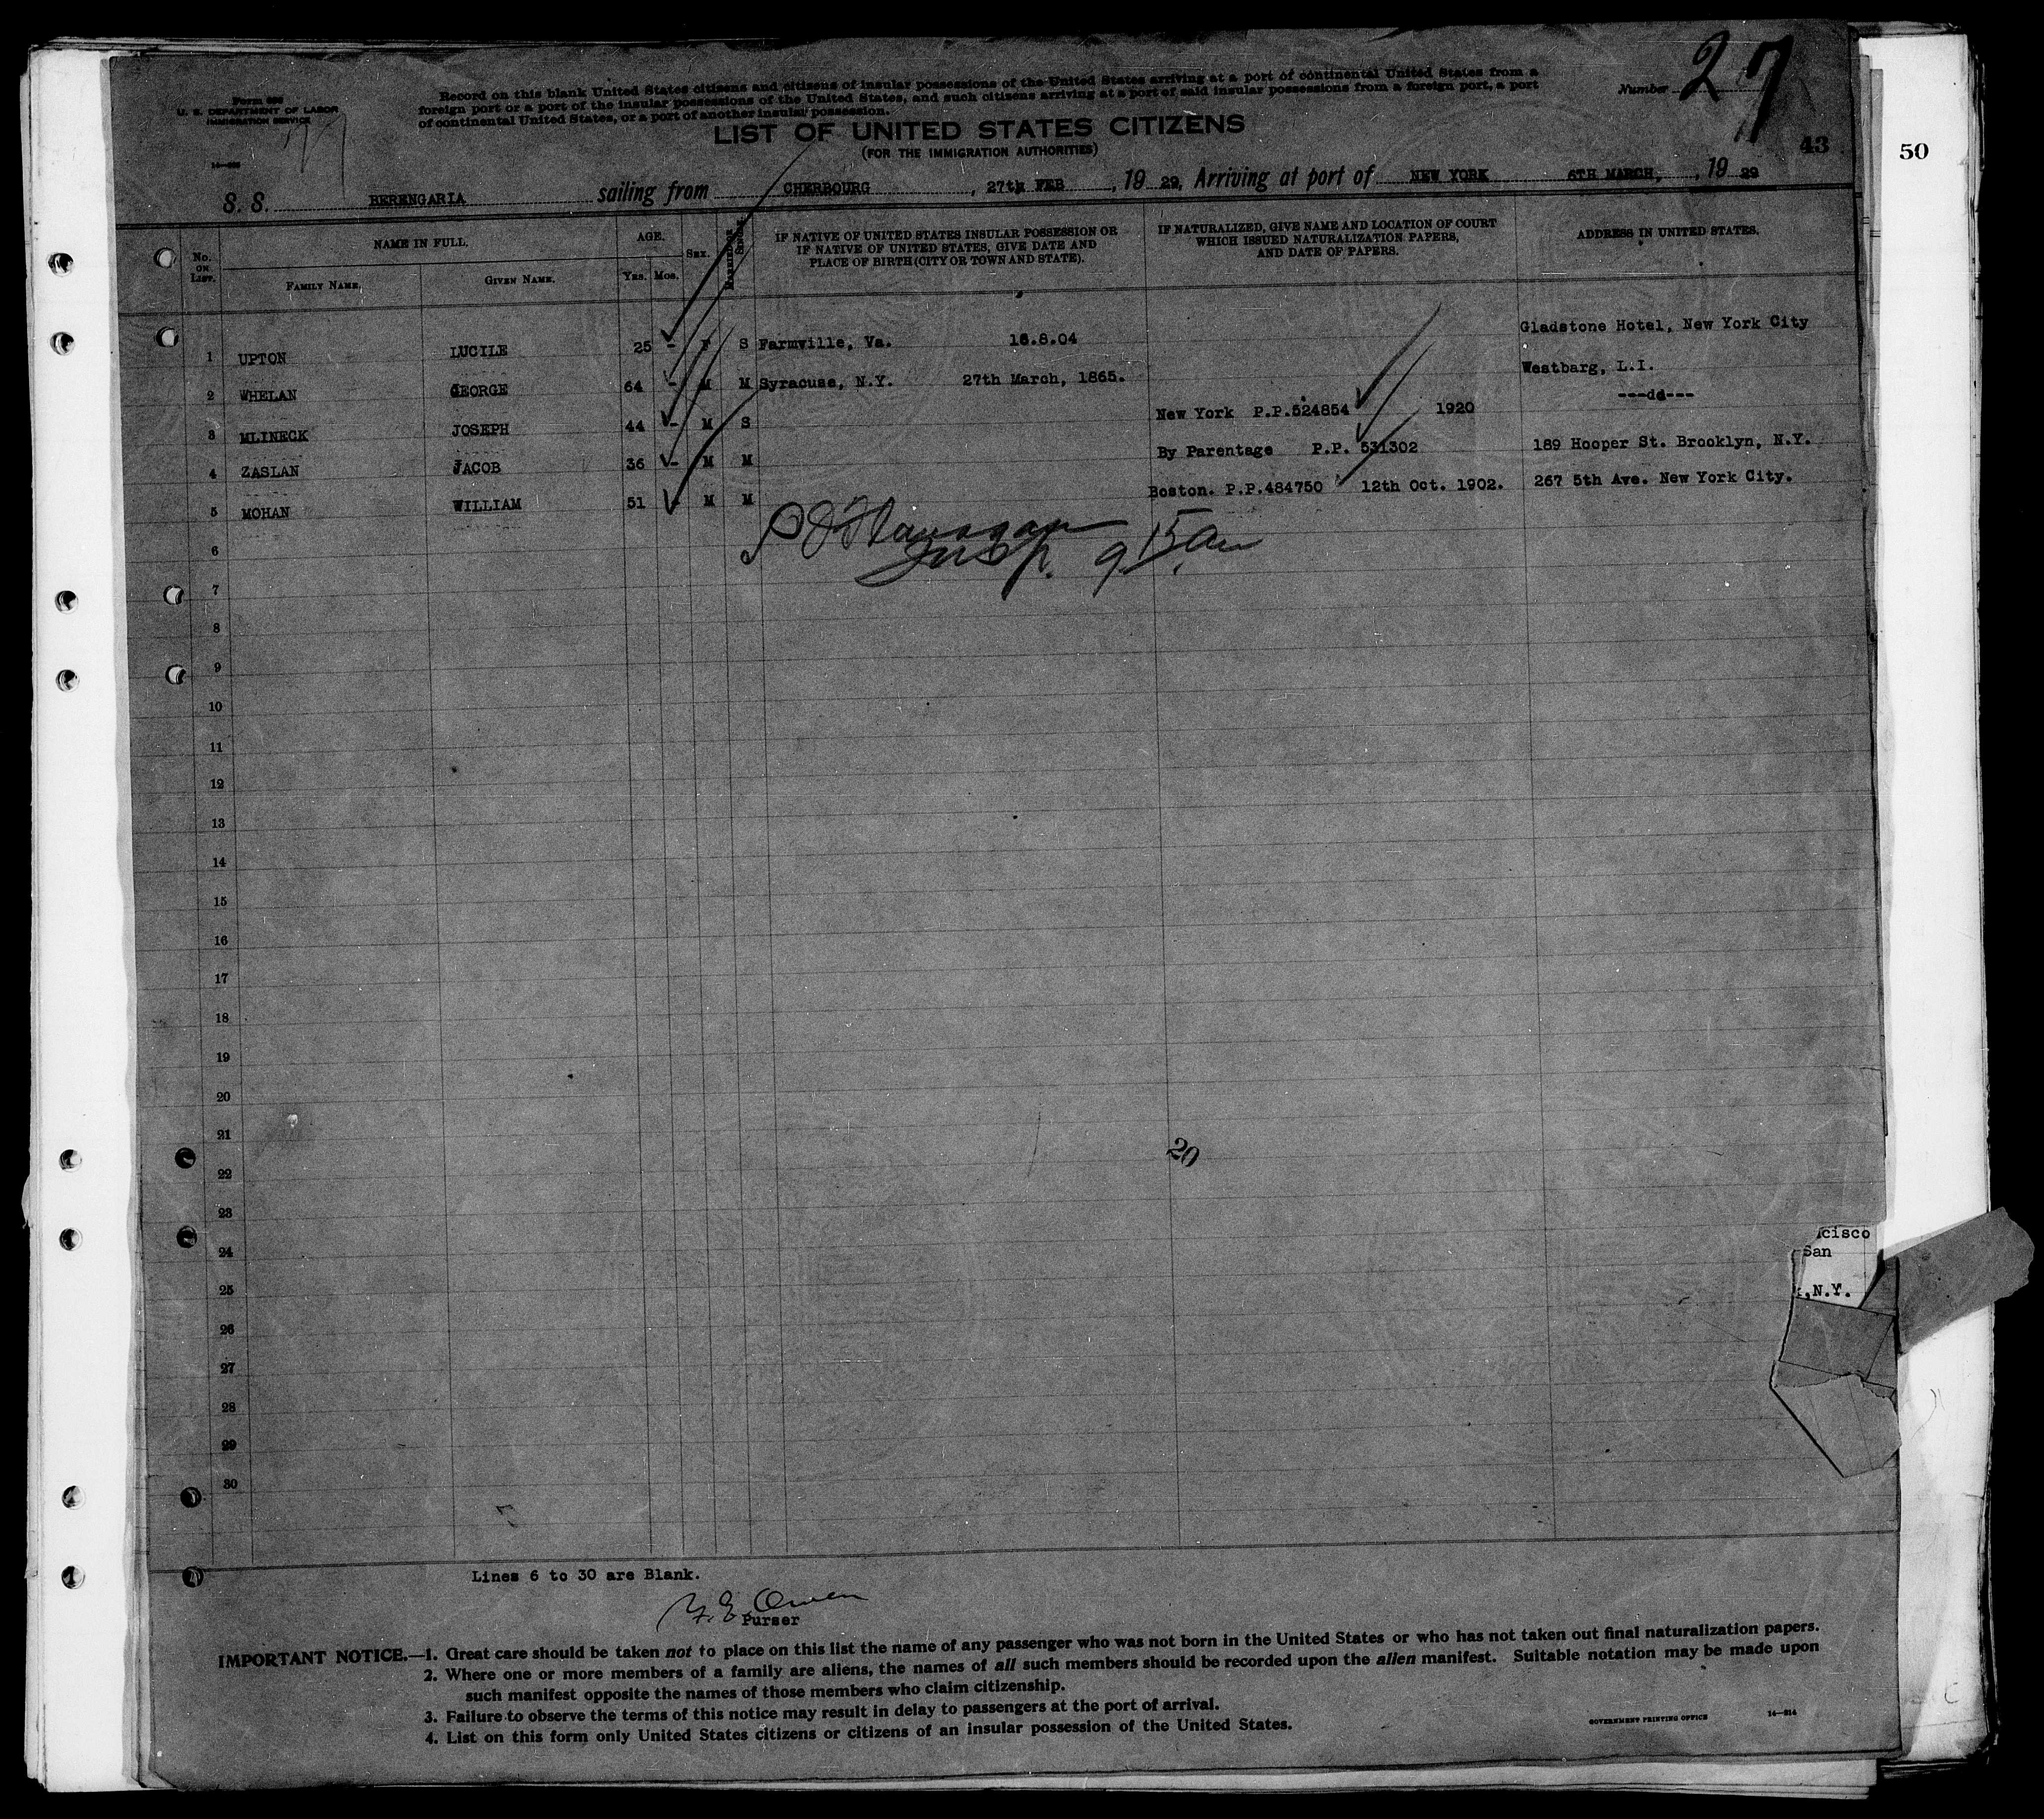 Form 630
U. S. DEPARTMENT OF LABOR
IMMIGRATION SERVICE
Record on this blank United States citizens and citizens of insular possessions of the United States arriving at a port of continental United States from a
foreign port or a port of the insular possessions of the United States, and such citizens arriving at a port of said insular possessions from a foreign port, a port
of continental United States, or a port of another insular possession.
Number 27
LIST OF UNITED STATES CITIZENS
(FOR THE IMMIGRATION AUTHORITIES)
43
50
S. S. BERENGARIA sailing from CHERBOURG, 27th FEB, 19 29, Arriving at port of NEW YORK 6TH MARCH, , 19 29
No. ON LIST. NAME IN FULL. AGE. SEX. MARRIED OR SINGLE. IF NATIVE OF UNITED STATES INSULAR POSSESSION OR IF NATIVE OF UNITED STATES, GIVE DATE AND PLACE OF BIRTH (CITY OR TOWN AND STATE). IF NATURALIZED, GIVE NAME AND LOCATION OF COURT WHICH ISSUED NATURALIZATION PAPERS, AND DATE OF PAPERS. ADDRESS IN UNITED STATES.
FAMILY NAME. GIVEN NAME. YRS. MOS.
1 UPTON LUCILE 25 - F S Farmville, Va. 16.8.04 Gladstone Hotel, New York City
2 WHELAN GEORGE 64 - M M Syracuse, N.Y. 27th March, 1865. Westbarg, L.I.
3 MLINECK JOSEPH 44 - M S New York P.P.524854 1920 ---dd---
4 ZASLAN JACOB 36 - M M By Parentage P.P. 531302 189 Hooper St. Brooklyn, N.Y.
5 MOHAN WILLIAM 51 - M M Boston. P.P.484750 12th Oct. 1902. 267 5th Ave. New York City.
6
Insp. 9.15 am
7
8
9
10
11
12
13
14
15
16
17
18
19
20
21
20
22
23
24
25
26
27
28
29
30
cisco
San
k,N.Y.
Lines 6 to 30 are Blank.
Owen
Purser
IMPORTANT NOTICE.—1. Great care should be taken not to place on this list the name of any passenger who was not born in the United States or who has not taken out final naturalization papers.
2. Where one or more members of a family are aliens, the names of all such members should be recorded upon the alien manifest. Suitable notation may be made upon
such manifest opposite the names of those members who claim citizenship.
3. Failure to observe the terms of this notice may result in delay to passengers at the port of arrival.
4. List on this form only United States citizens or citizens of an insular possession of the United States.
GOVERNMENT PRINTING OFFICE 14—214